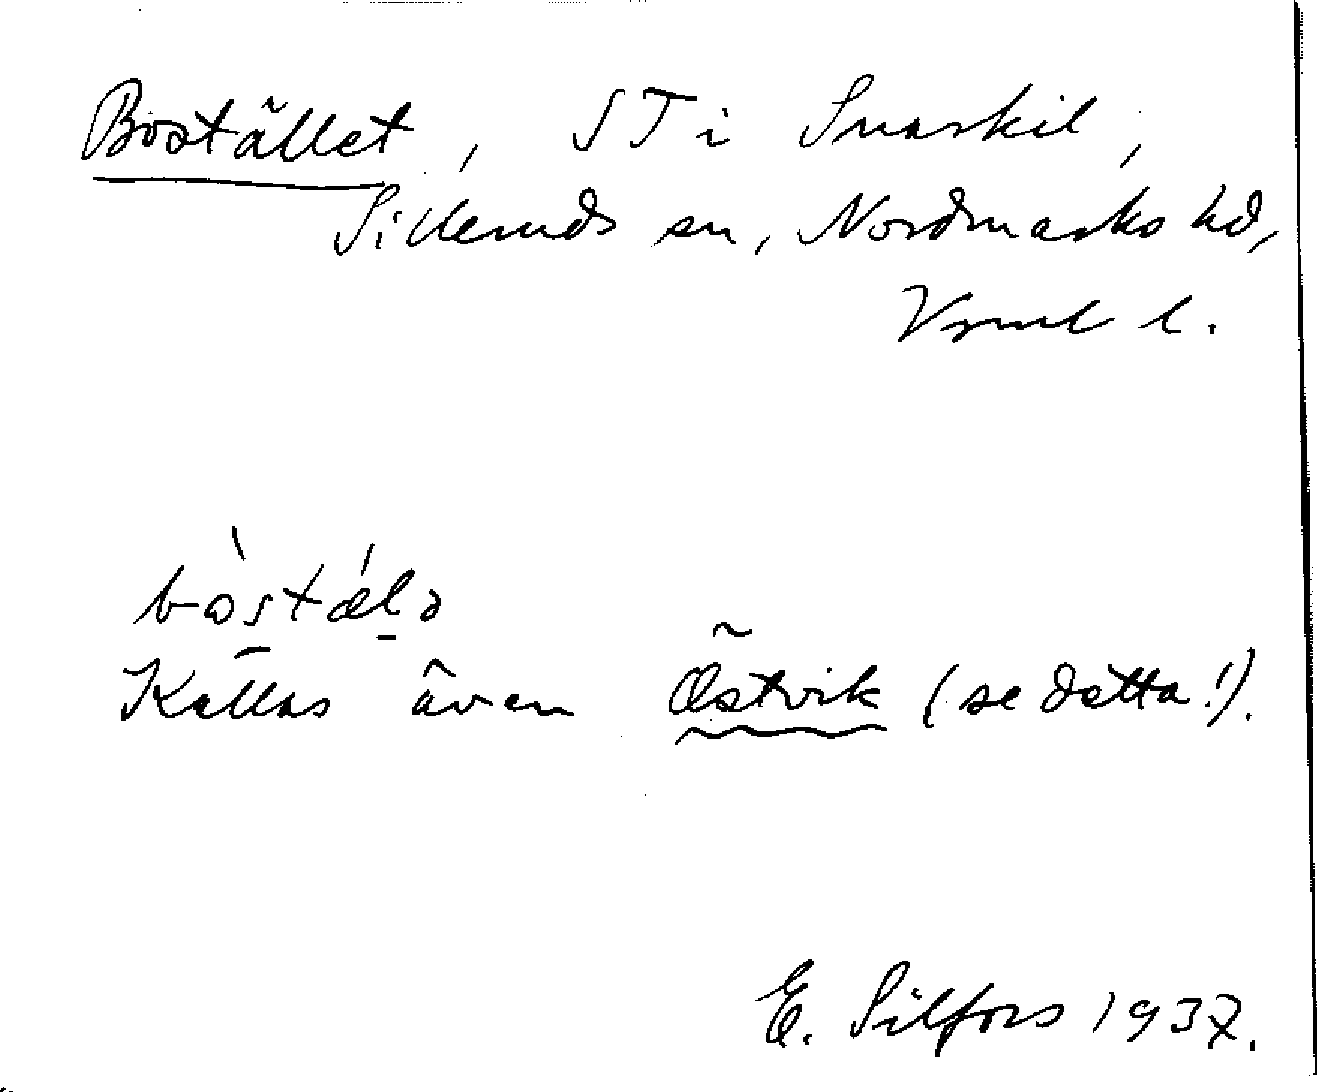 Bostället, ST i Snarkil,
Silleruds sn, Nordmarks hd,
Vrml l.
bòstǽlə
Kallas även Östvik (se detta!).
E. Silfors 1937.